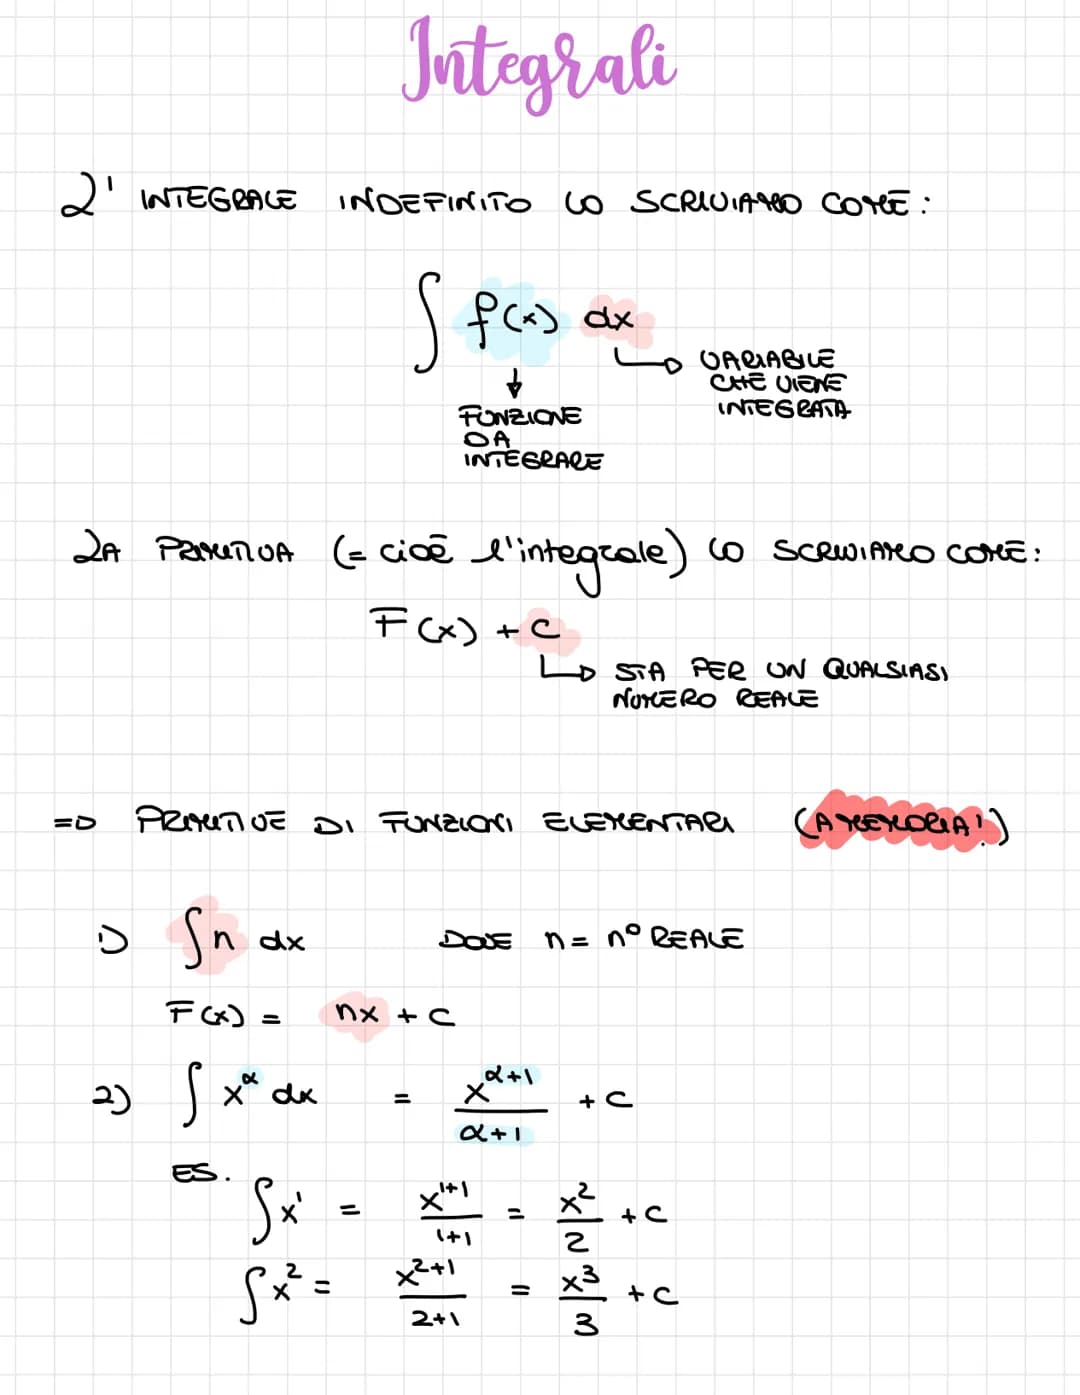 Integrali
L' INTEGRALE INDEFINITO LO SCRIVIAMO COME:
∫ f(x) dx
VARIABILE
CHE VIENE
INTEGRATA
FUNZIONE
DA
INTEGRARE
LA PRIMITIVA (= cioè l'integrale) LO SCRIVIAMO COME:
F(x) + C
STA PER UN QUALSIASI
NUMERO REALE
=D PRIMITIVE DI FUNZIONI ELEMENTARI (A MEMORIA!)
1) ∫ n dx DOVE n = n° REALE
F(x) = nx + C
2) ∫ x^α dx = x^(α+1) / (α+1) + C
ES.
∫ x^1 = x^(1+1) / (1+1) = x^2 / 2 + C
∫ x^2 = x^(2+1) / (2+1) = x^3 / 3 + C